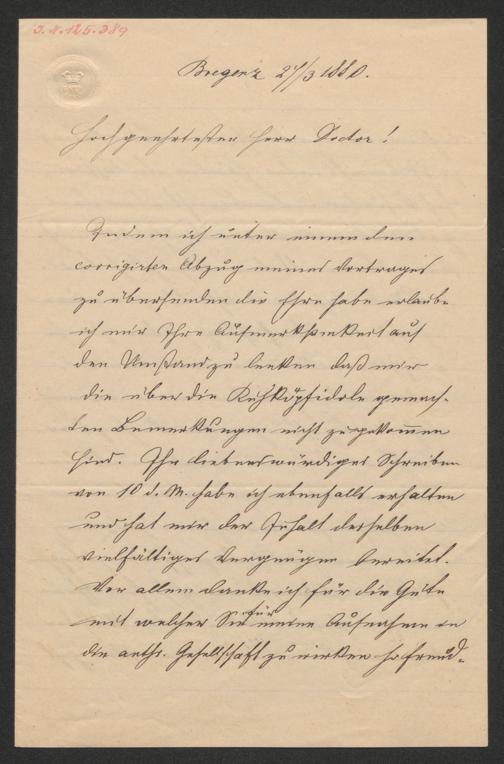 J.N. 125.389
Bregenz 27/3 1880.
Hochgeehrtester Herr Doctor!
Indem ich unter einem den
corrigirten Abzug meines Vortrages
zu übersenden die Ehre habe erlaube
ich mir Ihre Aufmerksamkeit auf
den Umstand zu lenken daß mir
die über die Kuhkopfidole gemach-
ten Bemerkungen nicht zugekommen
sind. Ihr liebenswürdiges Schreiben
von 10 d. M. habe ich ebenfalls erhalten
und hat mir der Inhalt desselben
vielfältiges Vergnügen bereitet.
Vor allem danke ich für die Güte
mit welcher Sie für meine Aufnahme in
die anthr. Gesellschaft zu wirken so freund-